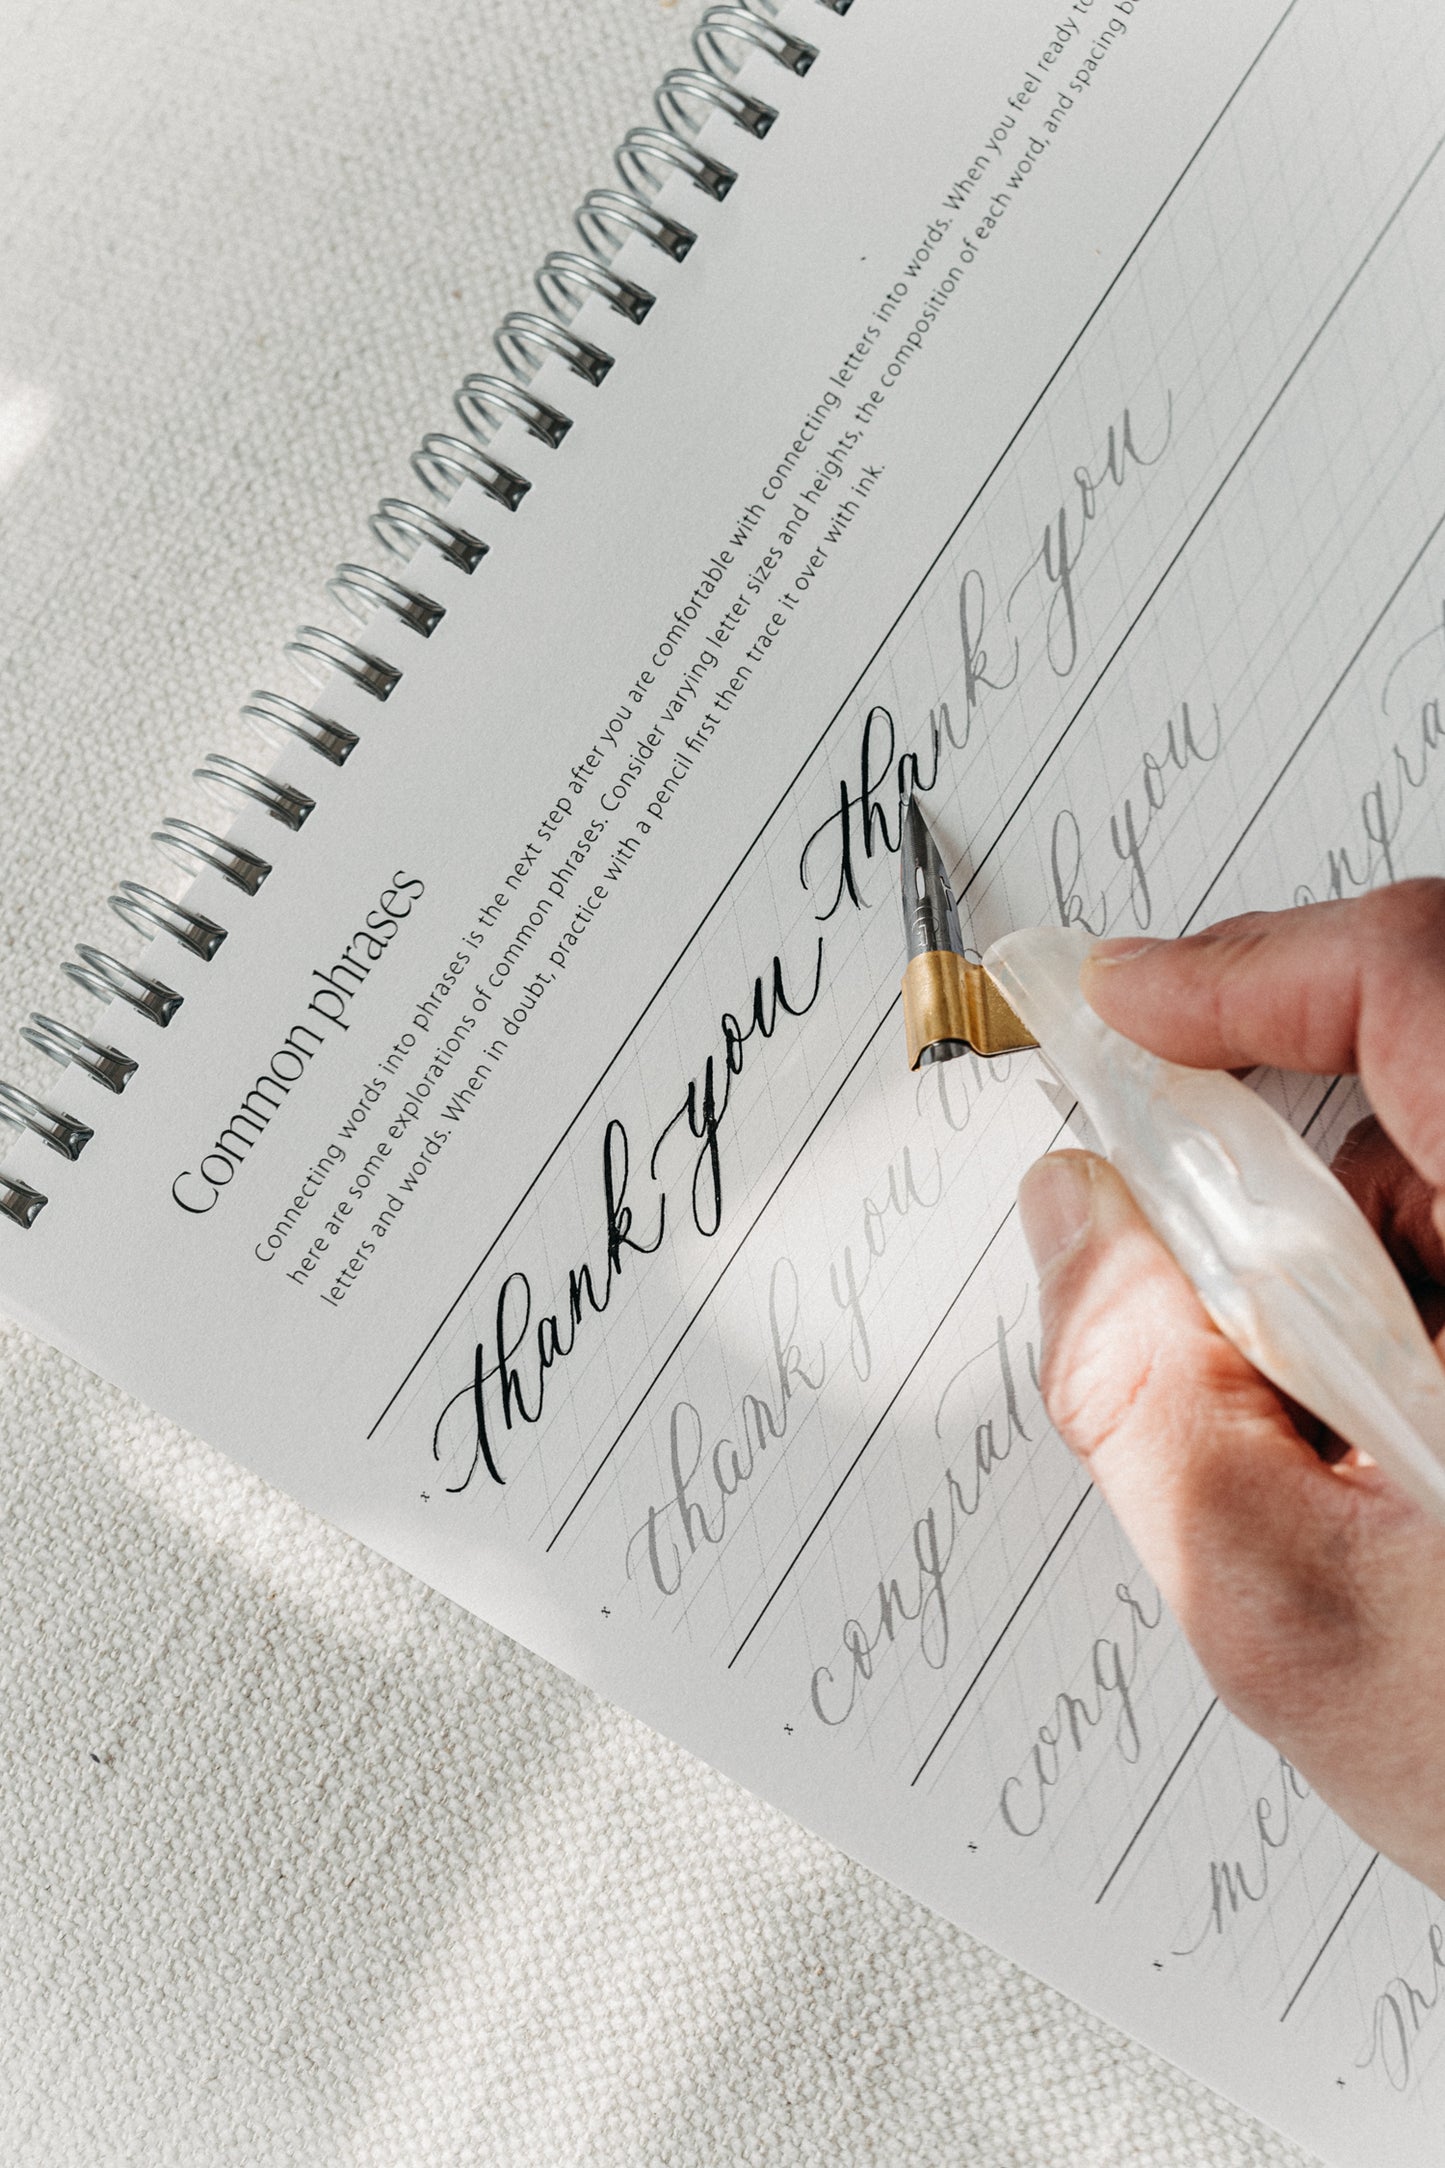 Common phrases
Connecting words into phrases is the next step after you are comfortable with connecting letters into words. When you feel ready to
here are some explorations of common phrases. Consider varying letter sizes and heights, the composition of each word, and spacing
letters and words. When in doubt, practice with a pencil first then trace it over with ink.
x thank you thank you
x thank you th k you
x congrat ongra
x congr
x mer
x me